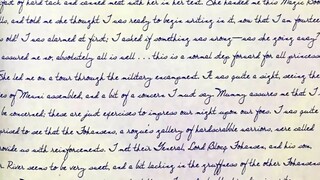 of hard tack and canned meat with her in her tent. She handed me this Magic Boo
lls, and told me she thought I was ready to begin writing in it, now that I am fourtee
s old! I was alarmed at first; I asked if something was wrong—was she going away?
assured me no, absolutely all is well . . . this is a normal step forward for all princess
She led me on a tour through the military encampment. It was quite a sight, seeing the
es of Menni assembled, and a bit of a concern I must say. Mummy assures me that I
be concerned; these are just exercises to impress our might upon our foes. I was quit
prised to see that the Fohansens, a rogue's gallery of hardscrabble warriors, were called
ovide us with reinforcements. I met their General, Lord Bloog Fohansen, and his son,
River seems to be very sweet, and a bit lacking in the gruffness of the other Fohansens